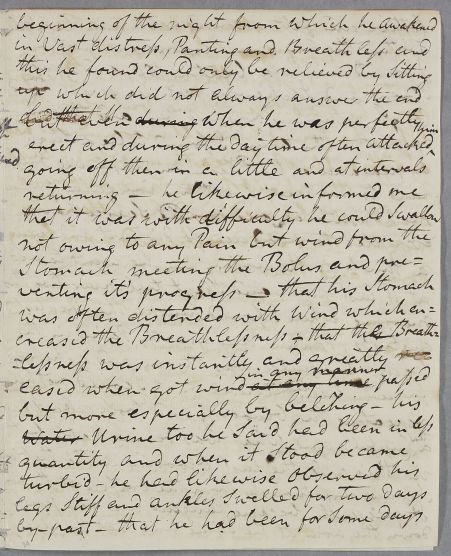 beginning of the night from which he awakened
in Vast distress, Panting and Breathless and
this he found could only be relieved by Sitting
up which did not always answer the end
but even during when he was perfectly
erect and during the day time often attacked him
going off then in a little and at intervals
returning — he likewise informed me
that it was with difficulty he could Swallow
not owing to any Pain but wind from the
Stomach meeting the Bolus and pre=
venting it's progress — that his Stomach
was often distended with Wind which en=
creased the Breathlessness — that this Breath=
lessness was instantly and greatly
eased when got wind at any time in any manner passed
but more especially by belching — his
Water Urine too he Said had been in less
quantity and when it Stood became
turbid — he had likewise observed his
legs Stiff and ankles Swelled for two days
by-past — that he had been for Some days